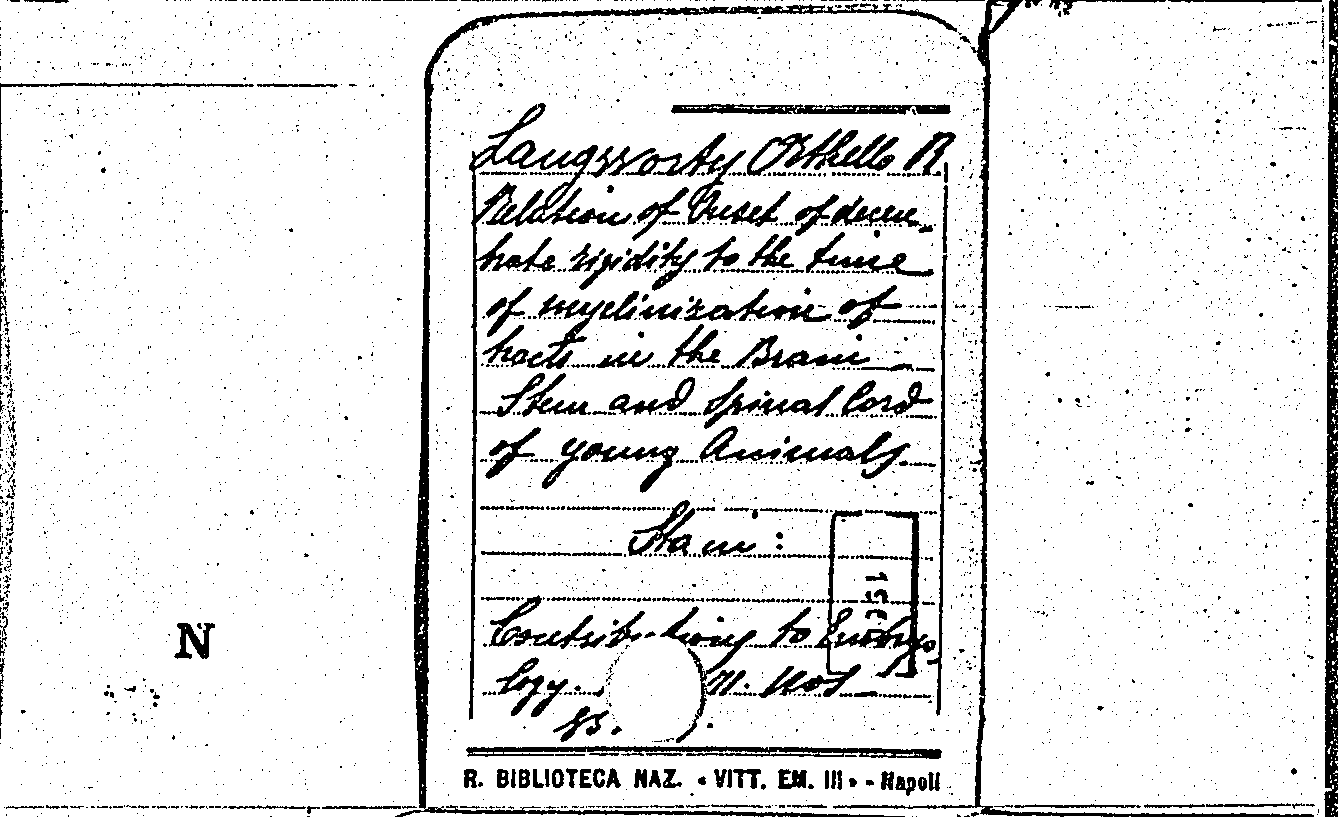 Langsworty Orthello R.
Relation of Onset of decere-
brate rigidity to the time
of myelinization of
tracts in the Brain
Stem and Spinal Cord
of young Animals
Sta in :
Contributiong to Embryo
logy.
N
R. BIBLIOTECA NAZ. « VITT. EM. III » - Napoli